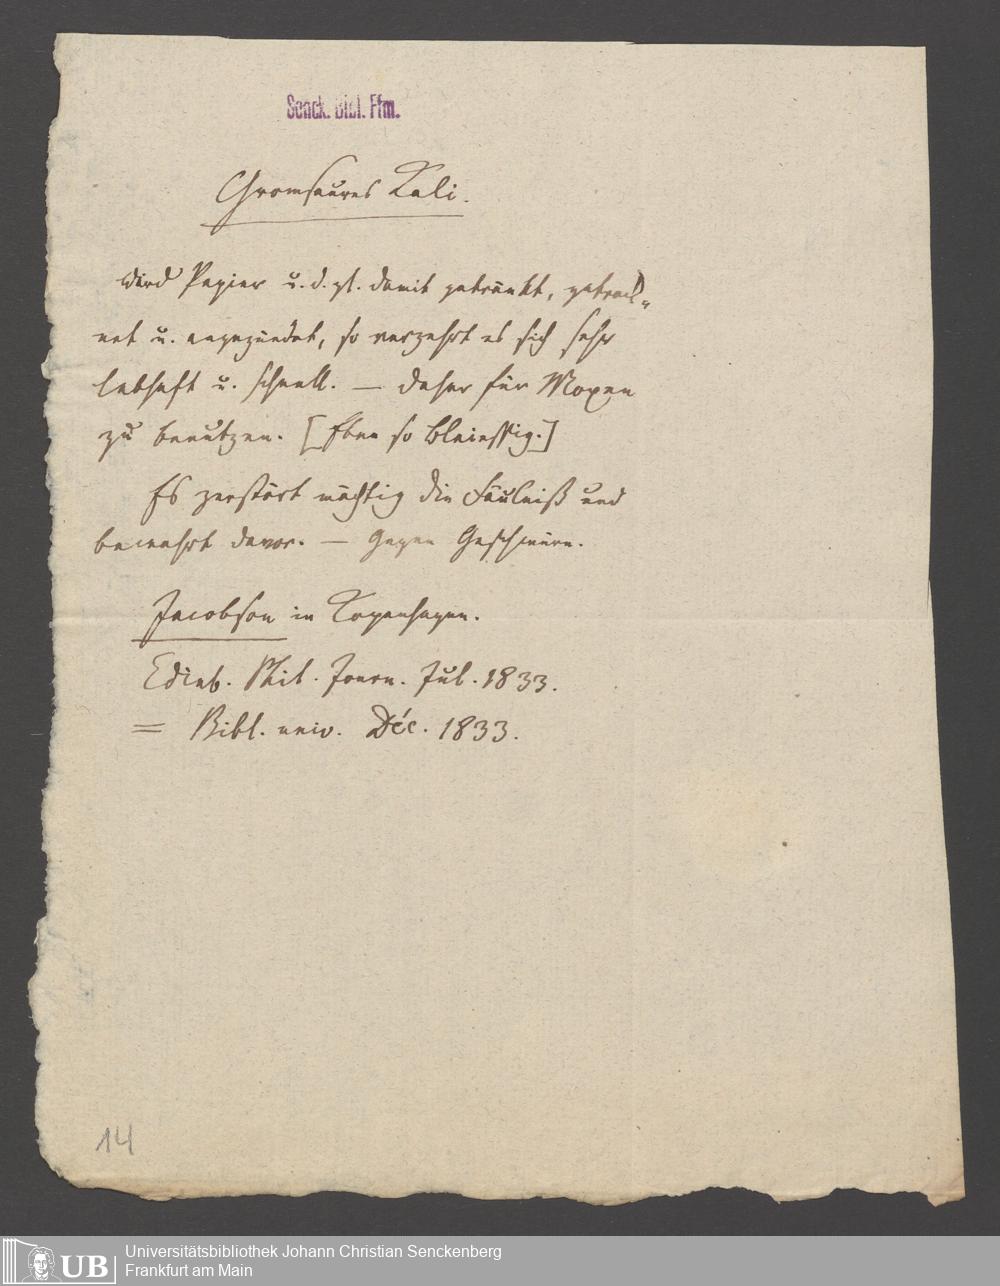 Senck. Bibl. Ffm.
Chromsaures Kali.
Wird Papier u. d. gl. damit getränkt, getrock=
net u. angezündet, so verzehrt es sich sehr
lebhaft u. schnell. — daher für Moxen
zu benutzen. [Eben so Bleiessig.]
Es zerstört mächtig die Fäulniß und
bewahrt davor. — Gegen Geschwüre.
Jacobson in Kopenhagen.
Edinb. Phil. Journ. Jul. 1833.
= Bibl. univ. Déc. 1833.
14
UB
Universitätsbibliothek Johann Christian Senckenberg
Frankfurt am Main